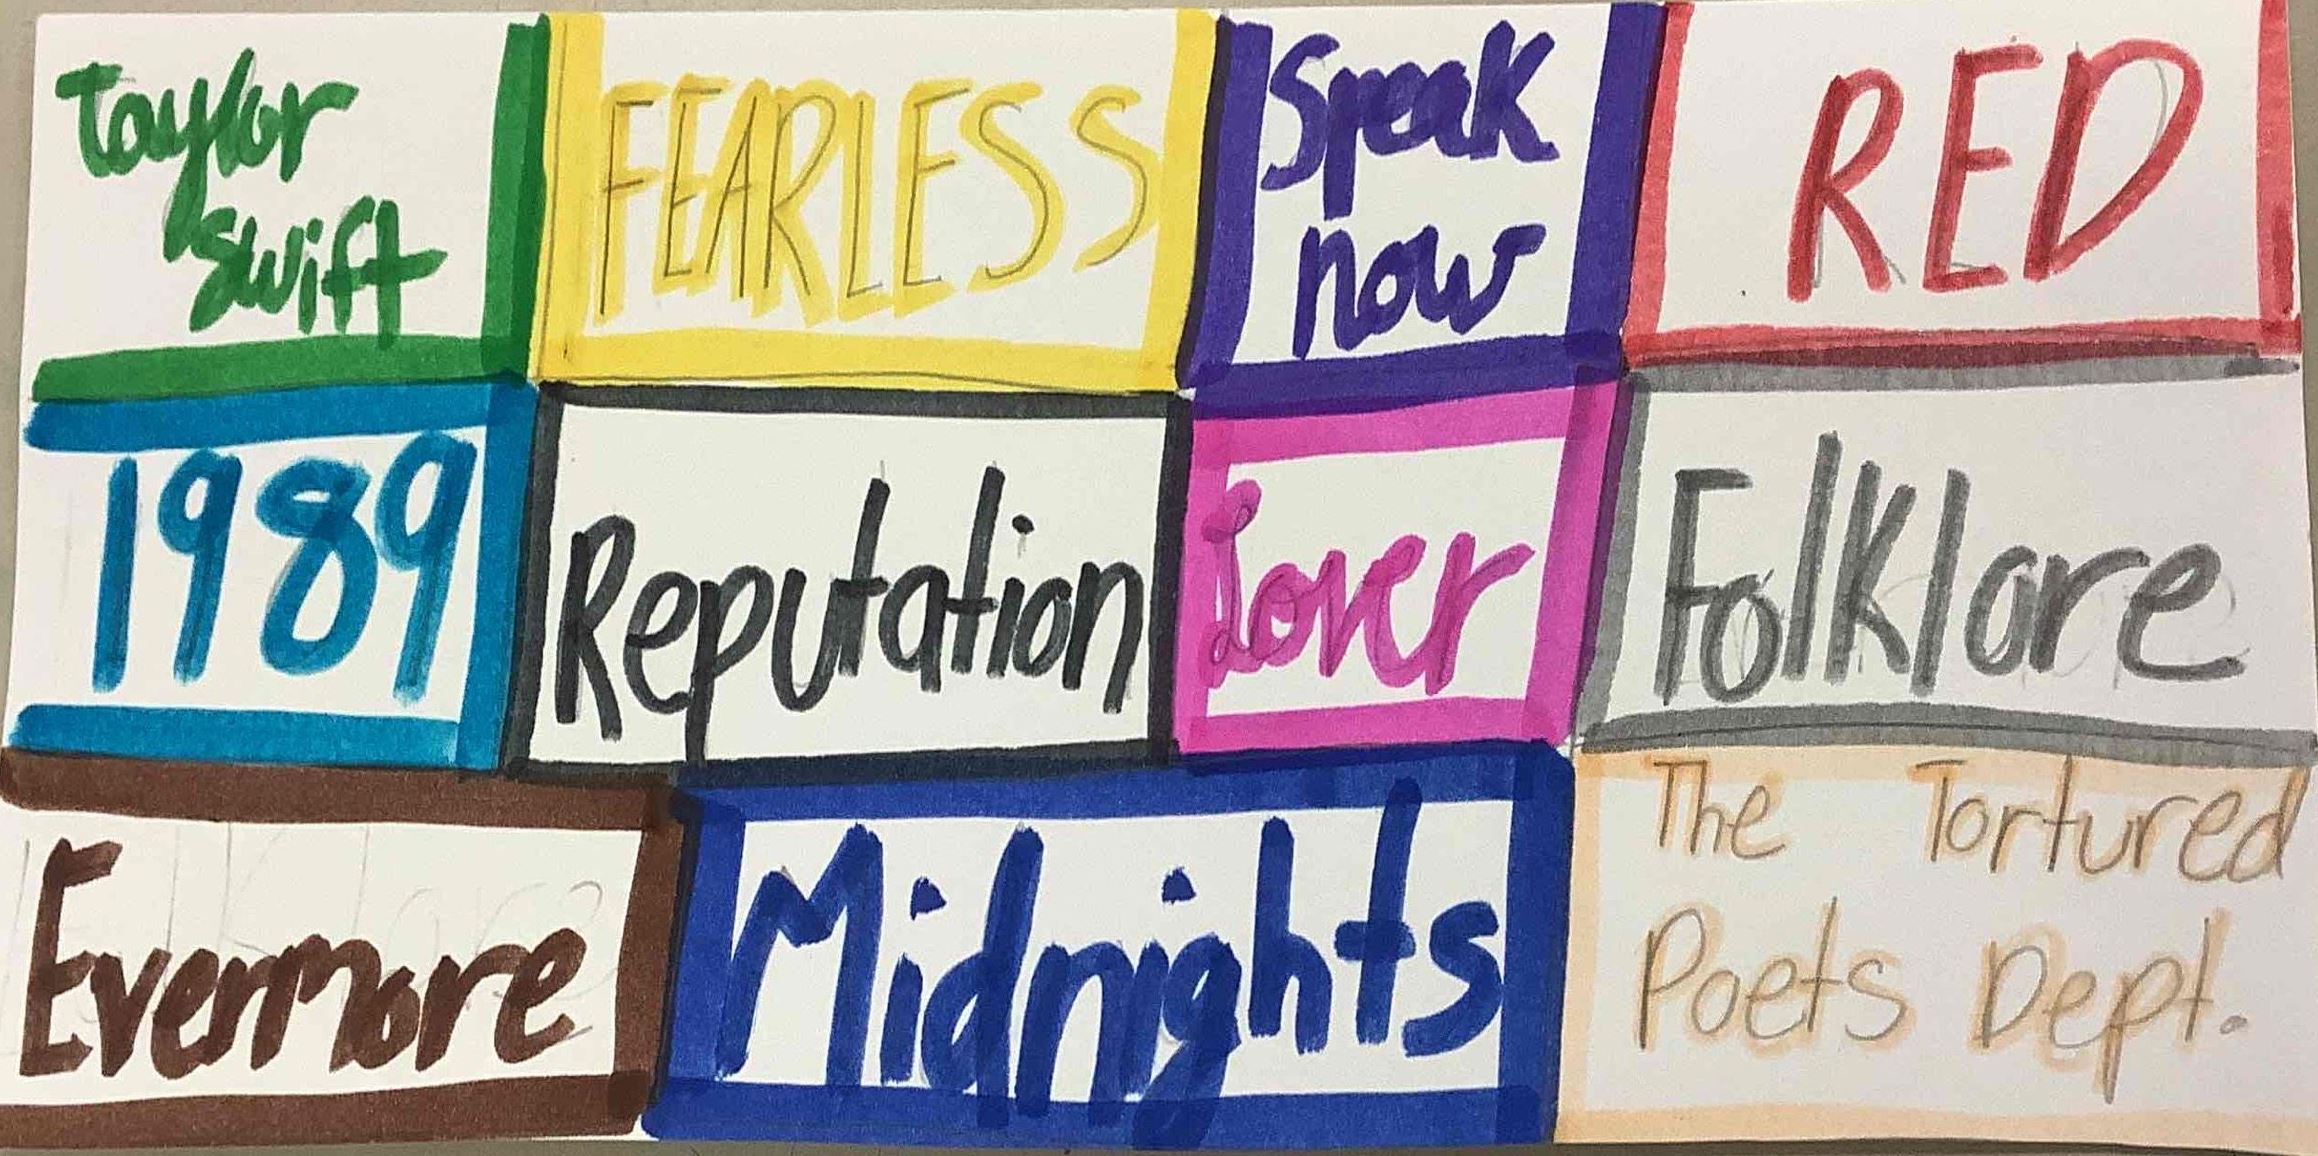 Taylor
Swift
FEARLESS
Speak
now
RED
1989
Reputation
Lover
Folklore
Evermore
Midnights
The Tortured
Poets Dept.